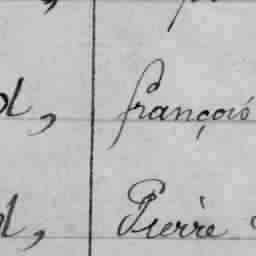 françois
Pierre